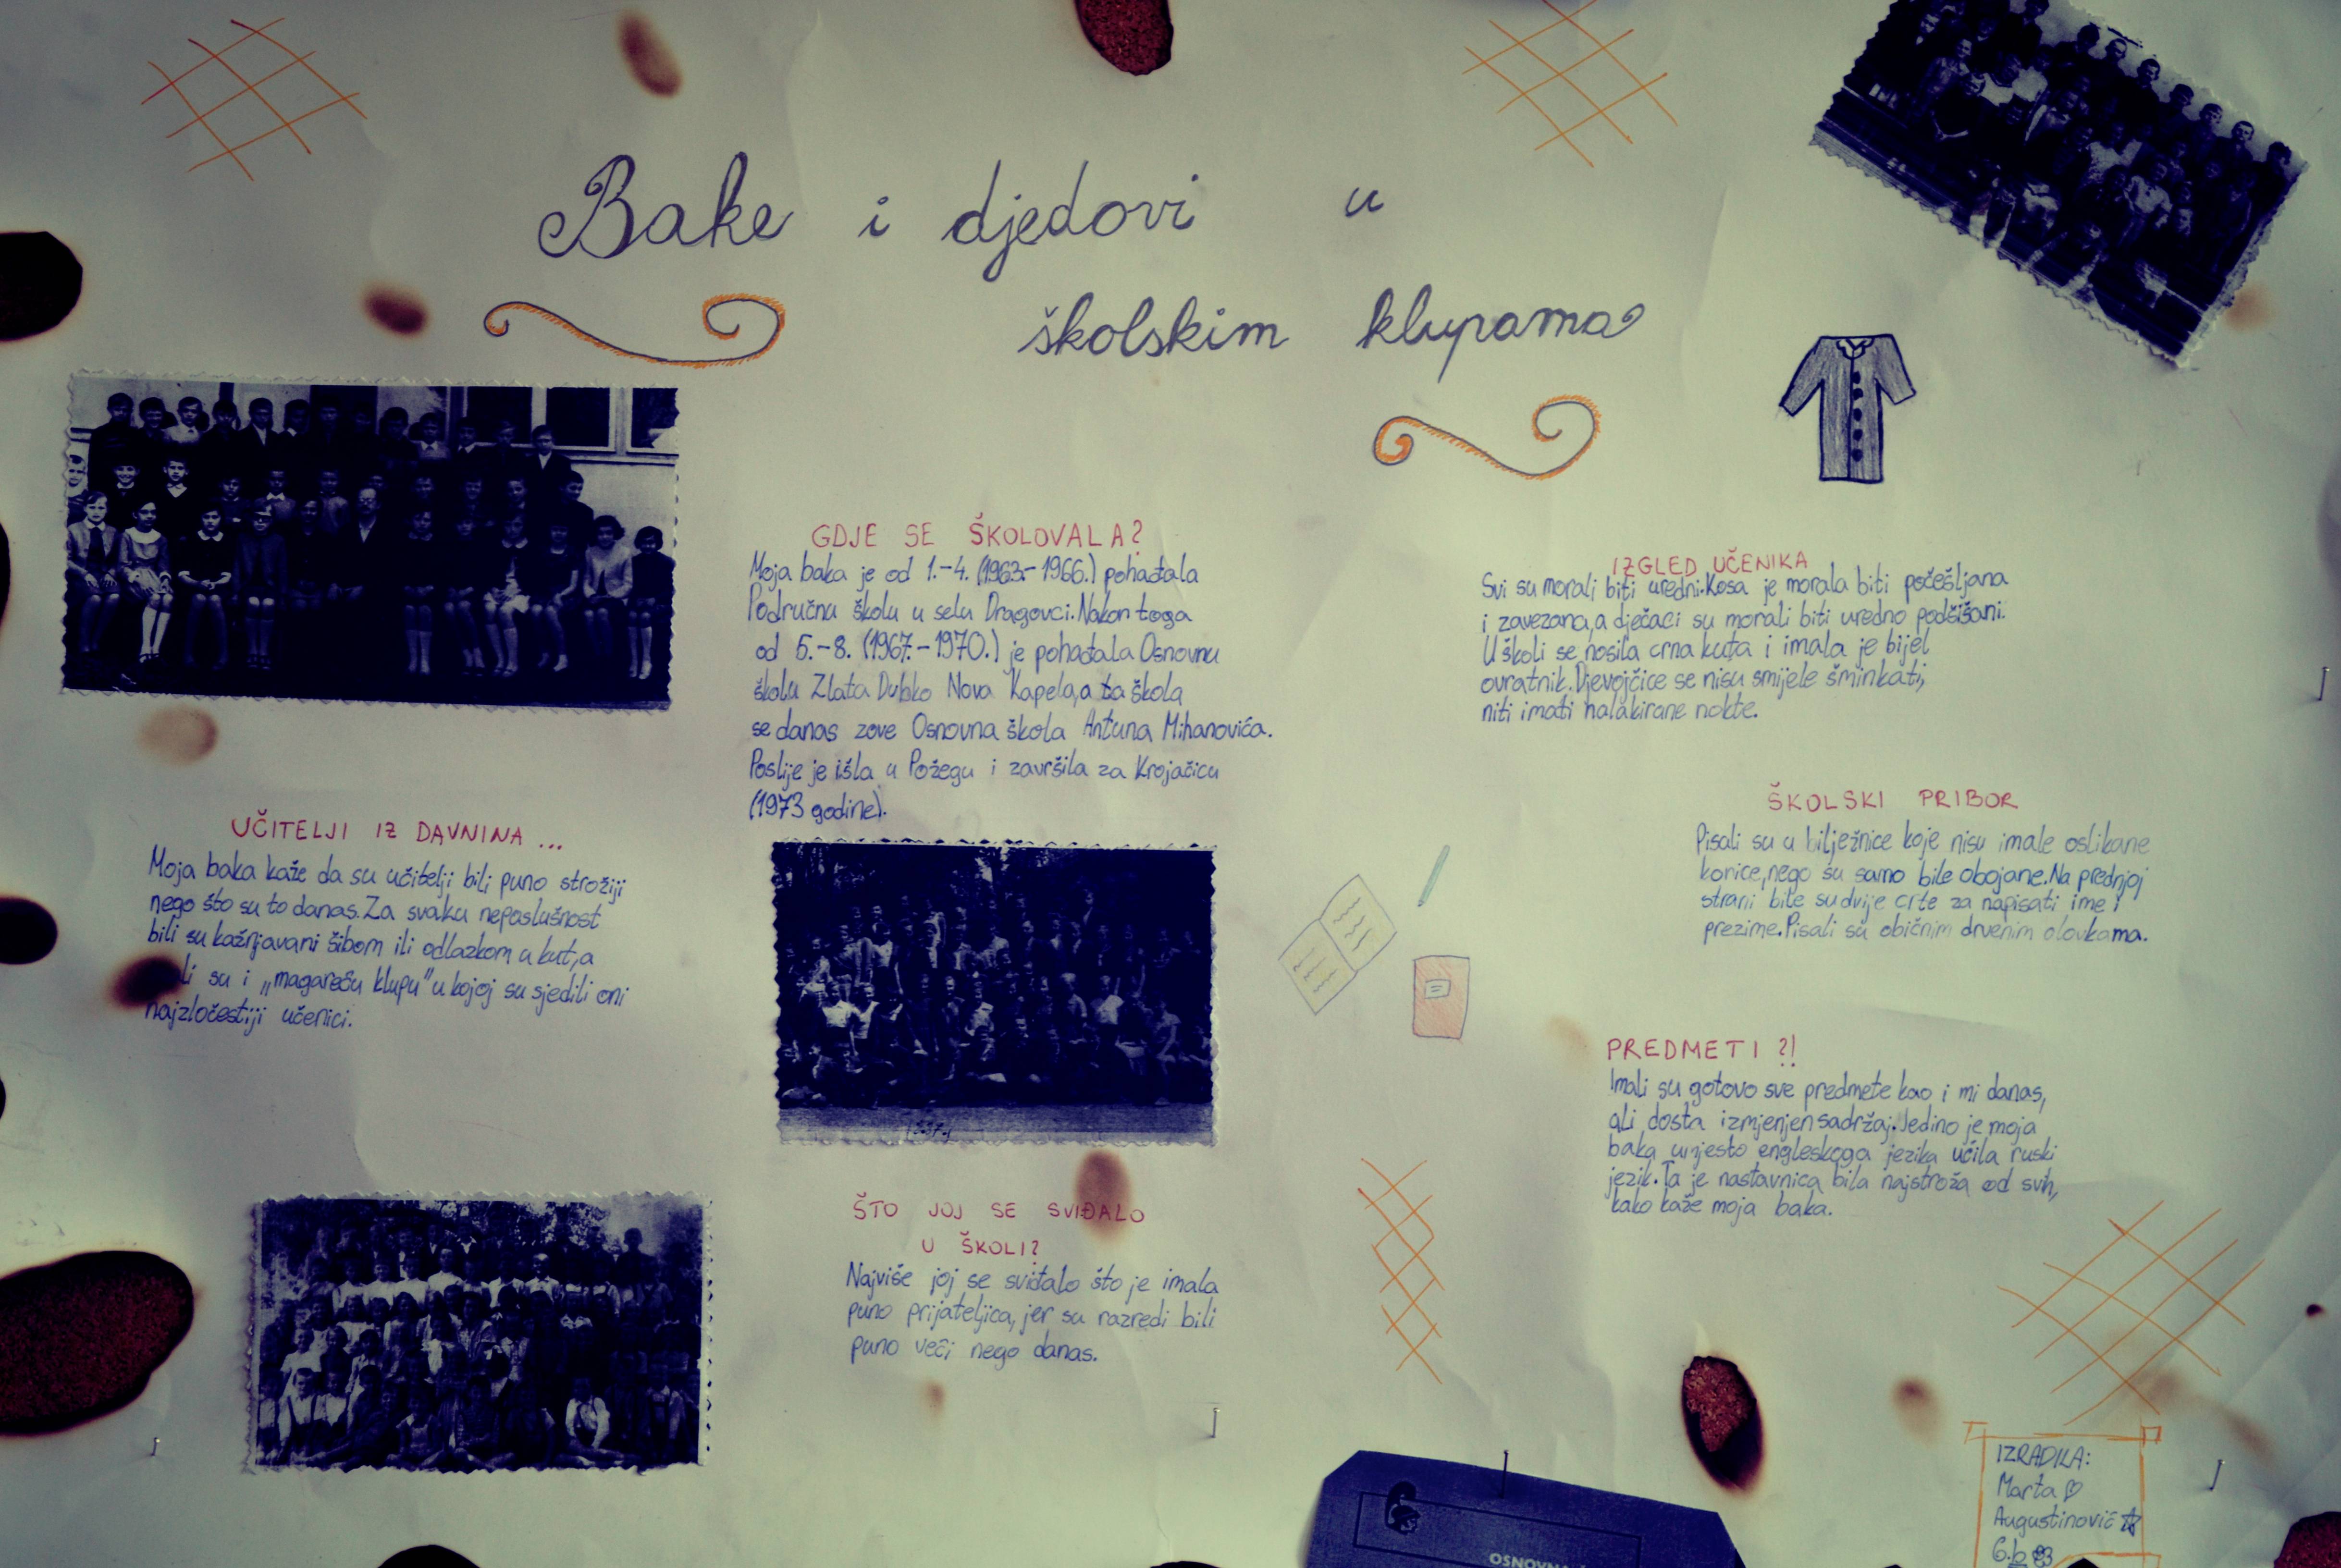 Bake i djedovi u
školskim klupama
GDJE SE ŠKOLOVALA?
Moja baka je od 1.-4. (1963.-1966.) pohađala
Područnu školu u selu Dragovci. Nakon toga
od 5.-8. (1967.-1970.) je pohađala Osnovnu
školu Zlata Dubko Nova Kapela, a ta škola
se danas zove Osnovna škola Antuna Mihanovića.
Poslije je išla u Požegu i završila za Krojačicu
(1973 godine).
UČITELJI IZ DAVNINA ...
Moja baka kaže da su učitelji bili puno strožiji
nego što su to danas. Za svaku neposlušnost
bili su kažnjavani šibom ili odlazkom u kut, a
li su i „magareću klupu" u kojoj su sjedili oni
najzločestiji učenici.
ŠTO JOJ SE SVIĐALO
U ŠKOLI?
Najviše joj se sviđalo što je imala
puno prijateljica, jer su razredi bili
puno veči nego danas.
IZGLED UČENIKA
Svi su morali biti uredni. Kosa je morala biti počešljana
i zavezana, a dječaci su morali biti uredno podšišani.
U školi se nosila crna kuta i imala je bijel
ovratnik. Djevojčice se nisu smijele šminkati,
niti imati nalakirane nokte.
ŠKOLSKI PRIBOR
Pisali su u bilježnice koje nisu imale oslikane
korice, nego su samo bile obojane. Na prednjoj
strani bile su dvije crte za napisati ime i
prezime. Pisali su običnim drvenim olovkama.
PREDMETI ?!
Imali su gotovo sve predmete kao i mi danas,
ali dosta izmjenjen sadržaj. Jedino je moja
baka umjesto engleskoga jezika učila ruski
jezik. Ta je nastavnica bila najstroža od svih,
kako kaže moja baka.
IZRADILA:
Marta
Augustinović
6.b